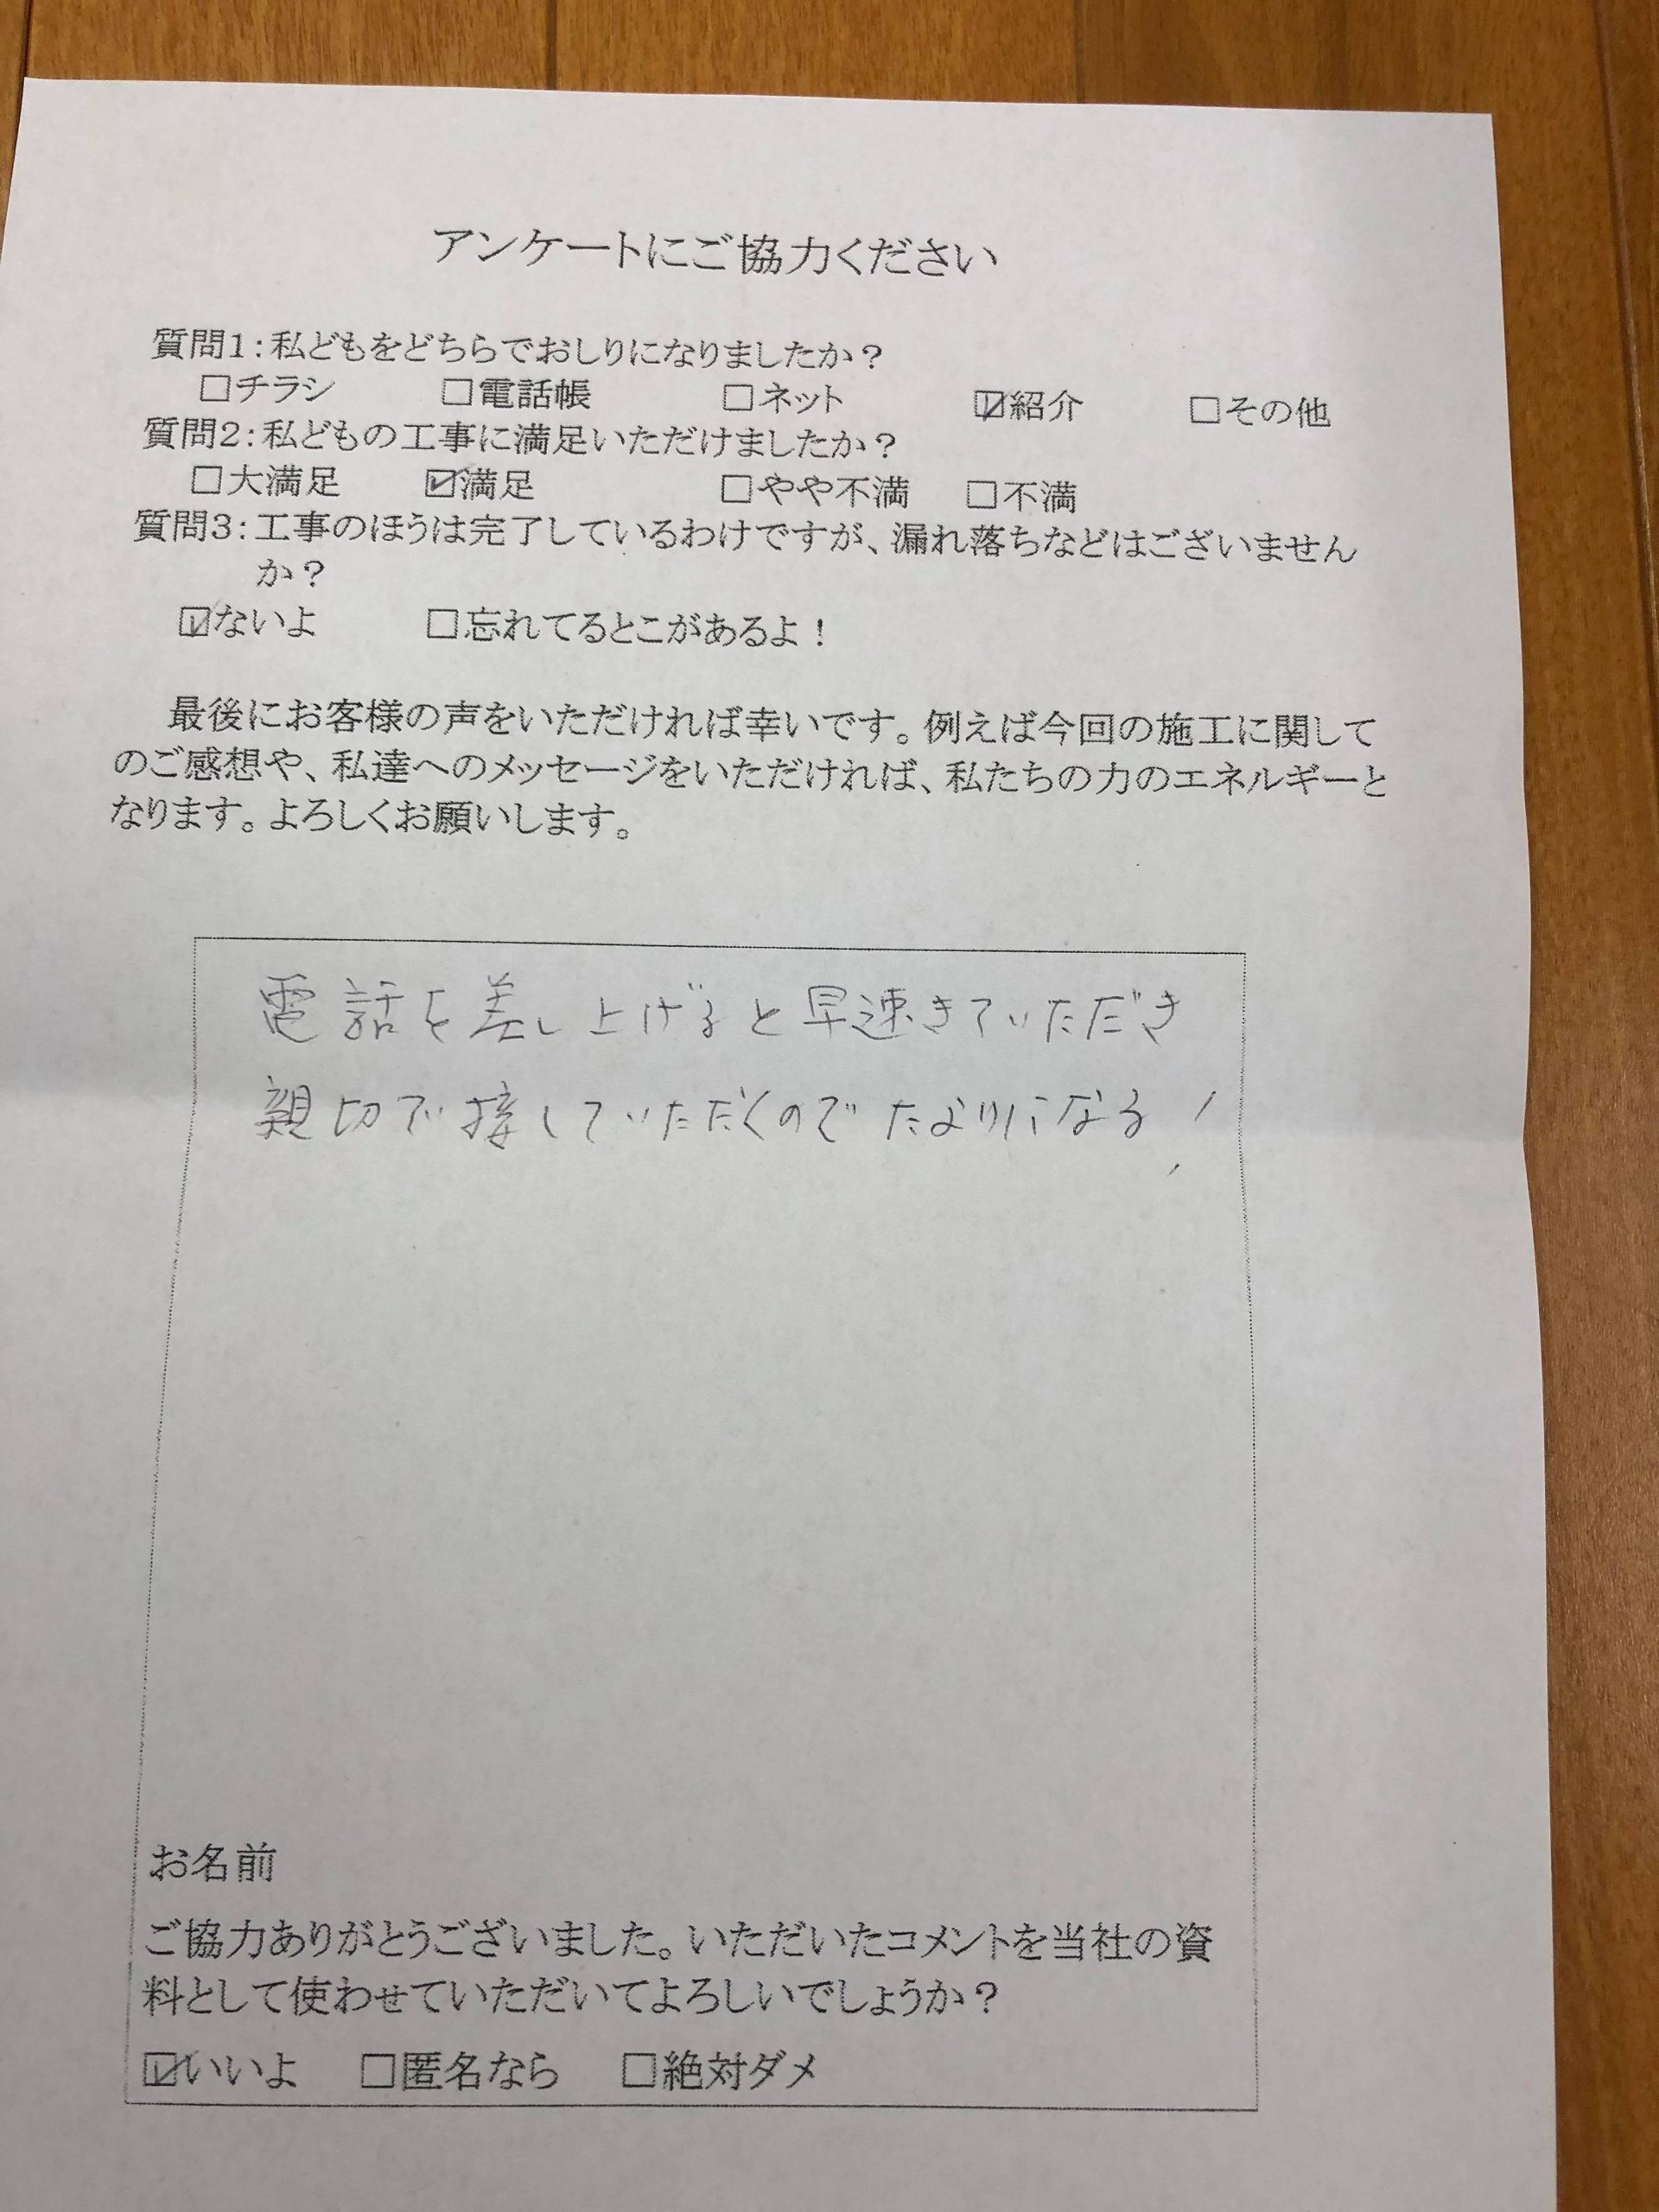 アンケートにご協力ください
質問1：私どもをどちらでおしりになりましたか？
□チラシ □電話帳 □ネット ☑紹介 □その他
質問2：私どもの工事に満足いただけましたか？
□大満足 ☑満足 □やや不満 □不満
質問3：工事のほうは完了しているわけですが、漏れ落ちなどはございません
か？
☑ないよ □忘れてるとこがあるよ！
最後にお客様の声をいただければ幸いです。例えば今回の施工に関して
のご感想や、私達へのメッセージをいただければ、私たちの力のエネルギーと
なります。よろしくお願いします。
電話を差し上げると早速きていただき
親切で接していただくのでたよりになる！
お名前
ご協力ありがとうございました。いただいたコメントを当社の資
料として使わせていただいてよろしいでしょうか？
☑いいよ □匿名なら □絶対ダメ